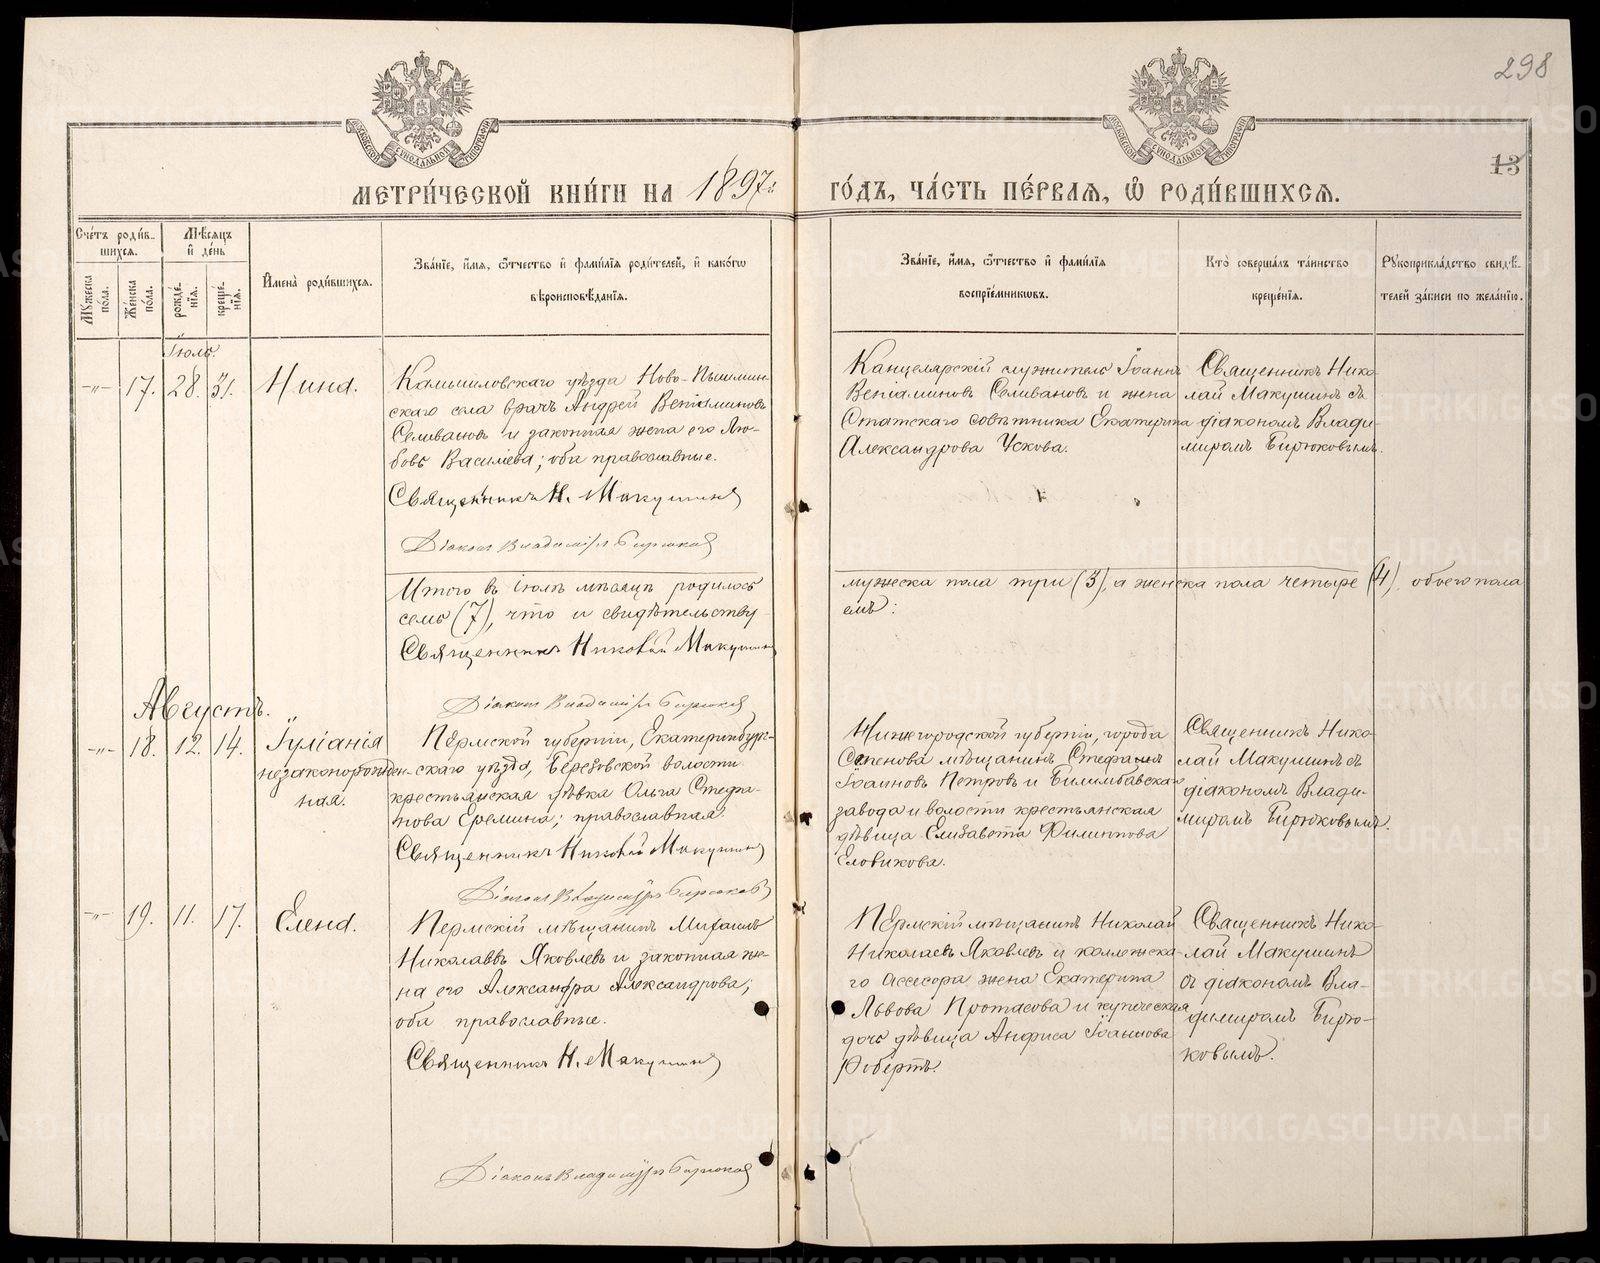 298
13
МОСКОВСКОЙ СѴНОДАЛЬНОЙ ТИПОГРАФІИ
МОСКОВСКОЙ СѴНОДАЛЬНОЙ ТИПОГРАФІИ
МЕТРИ́ЧЕСКОЙ КНИ́ГИ НА 1897 г.
ГО́ДЪ, ЧА́СТЬ ПЕ́РВАЯ, Ѽ РОДИ́ВШИХСЯ.
Сче́тъ роди́в-
шихся.
Мꙋ́жеска по́ла.
Же́нска по́ла.
Мѣ́сяцъ и҆ де́нь
рожде́нїя.
креще́нїя.
И҆мена̀ роди́вшихся.
Зва́нїе, и҆́мя, ѻ҆́тчество и҆ фами́лїя роди́телей, и҆ како́гѡ
вѣроисповѣ́данїя.
Зва́нїе, и҆́мя, ѻ҆́тчество и҆ фами́лїя
воспрїе́мниковъ.
Кто̀ соверша́лъ та́инство
креще́нїя.
Рꙋкоприкла́дство свидѣ́-
телей за́писи по жела́нїю.
Іюль.
-"- 17. 28. 31. Нина.
Камышловскаго уѣзда Ново-Пышмин-
скаго села врачъ Андрей Веніаминовъ
Селивановъ и законная жена его Лю-
бовь Васильева; оба православные.
Священникъ Н. Макушинъ
Діаконъ Владиміръ Бирюковъ
Канцелярскій служитель Іоаннъ
Веніаминовъ Селивановъ и жена
Статскаго совѣтника Екатерина
Александрова Ускова.
Священникъ Нико-
лай Макушинъ съ
діакономъ Влади-
миромъ Бирюковымъ.
Итого въ іюлѣ мѣсяцѣ родилось
мужеска пола три (3), а женска пола четыре (4), обоего пола
семь (7), что и свидѣтельству-
емъ:
Священникъ Николай Макушинъ
Діаконъ Владиміръ Бирюковъ
Августъ.
-"- 18. 12. 14. Іуліанія
незаконорожден-
ная.
Пермской губерніи, Екатеринбург-
скаго уѣзда, Березовской волости
крестьянская дѣвка Ольга Стефа-
нова Еремина; православная.
Священникъ Николай Макушинъ
Діаконъ Владиміръ Бирюковъ
Нижегородской губерніи, города
Семенова мѣщанинъ Стефанъ
Іоанновъ Петровъ и Билимбаевскаго
завода и волости крестьянская
дѣвица Елизавета Филиппова
Еловикова.
Священникъ Нико-
лай Макушинъ съ
діакономъ Влади-
миромъ Бирюковымъ.
-"- 19. 11. 17. Елена.
Пермскій мѣщанинъ Михаилъ
Николаевъ Яковлевъ и законная же-
на его Александра Александрова;
оба православные.
Священникъ Н. Макушинъ
Діаконъ Владиміръ Бирюковъ
Пермскій мѣщанинъ Николай
Николаевъ Яковлевъ и коллежска-
го ассесора жена Екатерина
Львова Протасова и купеческая
дочь дѣвица Анфиса Іоаннова
Робертъ.
Священникъ Нико-
лай Макушинъ
съ діакономъ Вла-
димиромъ Бирю-
ковымъ.
METRIKI.GASO-URAL.RU